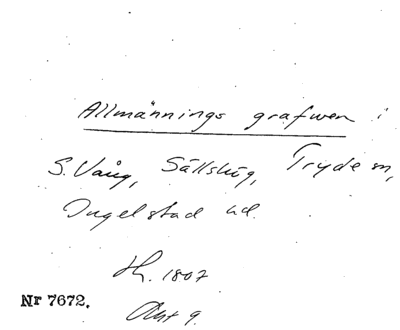 Allmännings grafwen i
S. Vång, Sällshög, Tryde m,
Ingelstad hd.
Hr. 1807
Nr 7672.
Akt 9.